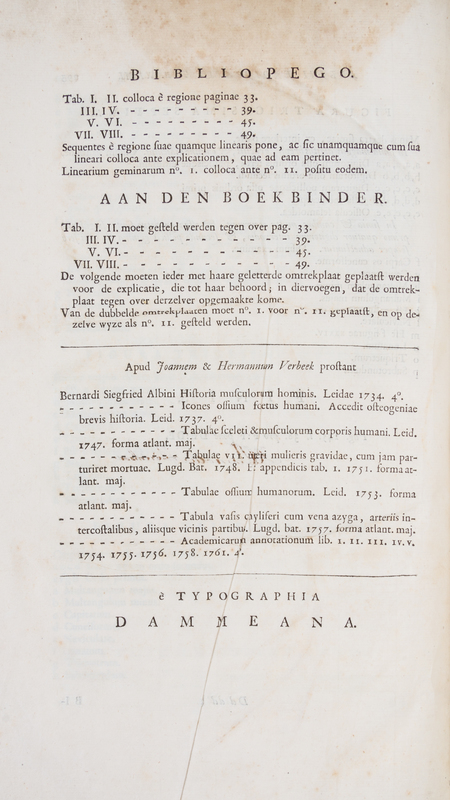 BIBLIOPEGO.
Tab. I. II. colloca è regione paginae 33.
III. IV. - - - - - - - - - 39.
V. VI. - - - - - - - - - 45.
VII. VIII. - - - - - - - - - 49.
Sequentes è regione ſuae quamque linearis pone, ac ſic unamquamque cum ſua
lineari colloca ante explicationem, quae ad eam pertinet.
Linearium geminarum nº. 1. colloca ante nº. 11. poſitu eodem.
AAN DEN BOEKBINDER.
Tab. I. II. moet geſteld werden tegen over pag. 33.
III. IV. - - - - - - - - - - - - 39.
V. VI. - - - - - - - - - - - - 45.
VII. VIII. - - - - - - - - - - - - 49.
De volgende moeten ieder met haare geletterde omtrekplaat geplaatſt werden
voor de explicatie, die tot haar behoord; in diervoegen, dat de omtrek-
plaat tegen over derzelver opgemaakte kome.
Van de dubbelde omtrekplaaten moet nº. 1. voor nº. 11. geplaatſt, en op de-
zelve wyze als nº. 11. geſteld werden.
Apud Joannem & Hermannum Verbeek proſtant
Bernardi Siegfried Albini Hiſtoria muſculorum hominis. Leidae 1734. 4º.
- - - - - - - - - - - Icones oſſium fœtus humani. Accedit oſteogeniae
brevis hiſtoria. Leid. 1737. 4º.
- - - - - - - - - - - Tabulae ſceleti & muſculorum corporis humani. Leid.
1747. forma atlant. maj.
- - - - - - - - - - - Tabulae VII. uteri mulieris gravidae, cum jam par-
turiret mortuae. Lugd. Bat. 1748. Et appendicis tab. 1. 1751. forma at-
lant. maj.
- - - - - - - - - - - Tabulae oſſium humanorum. Leid. 1753. forma
atlant. maj.
- - - - - - - - - - - Tabula vaſis chyliferi cum vena azyga, arteriis in-
tercoſtalibus, aliisque vicinis partibus. Lugd. bat. 1757. forma atlant. maj.
- - - - - - - - - - - Academicarum annotationum lib. I. II. III. IV. V.
1754. 1755. 1756. 1758. 1761. 4º.
è TYPOGRAPHIA
DAMMEANA.